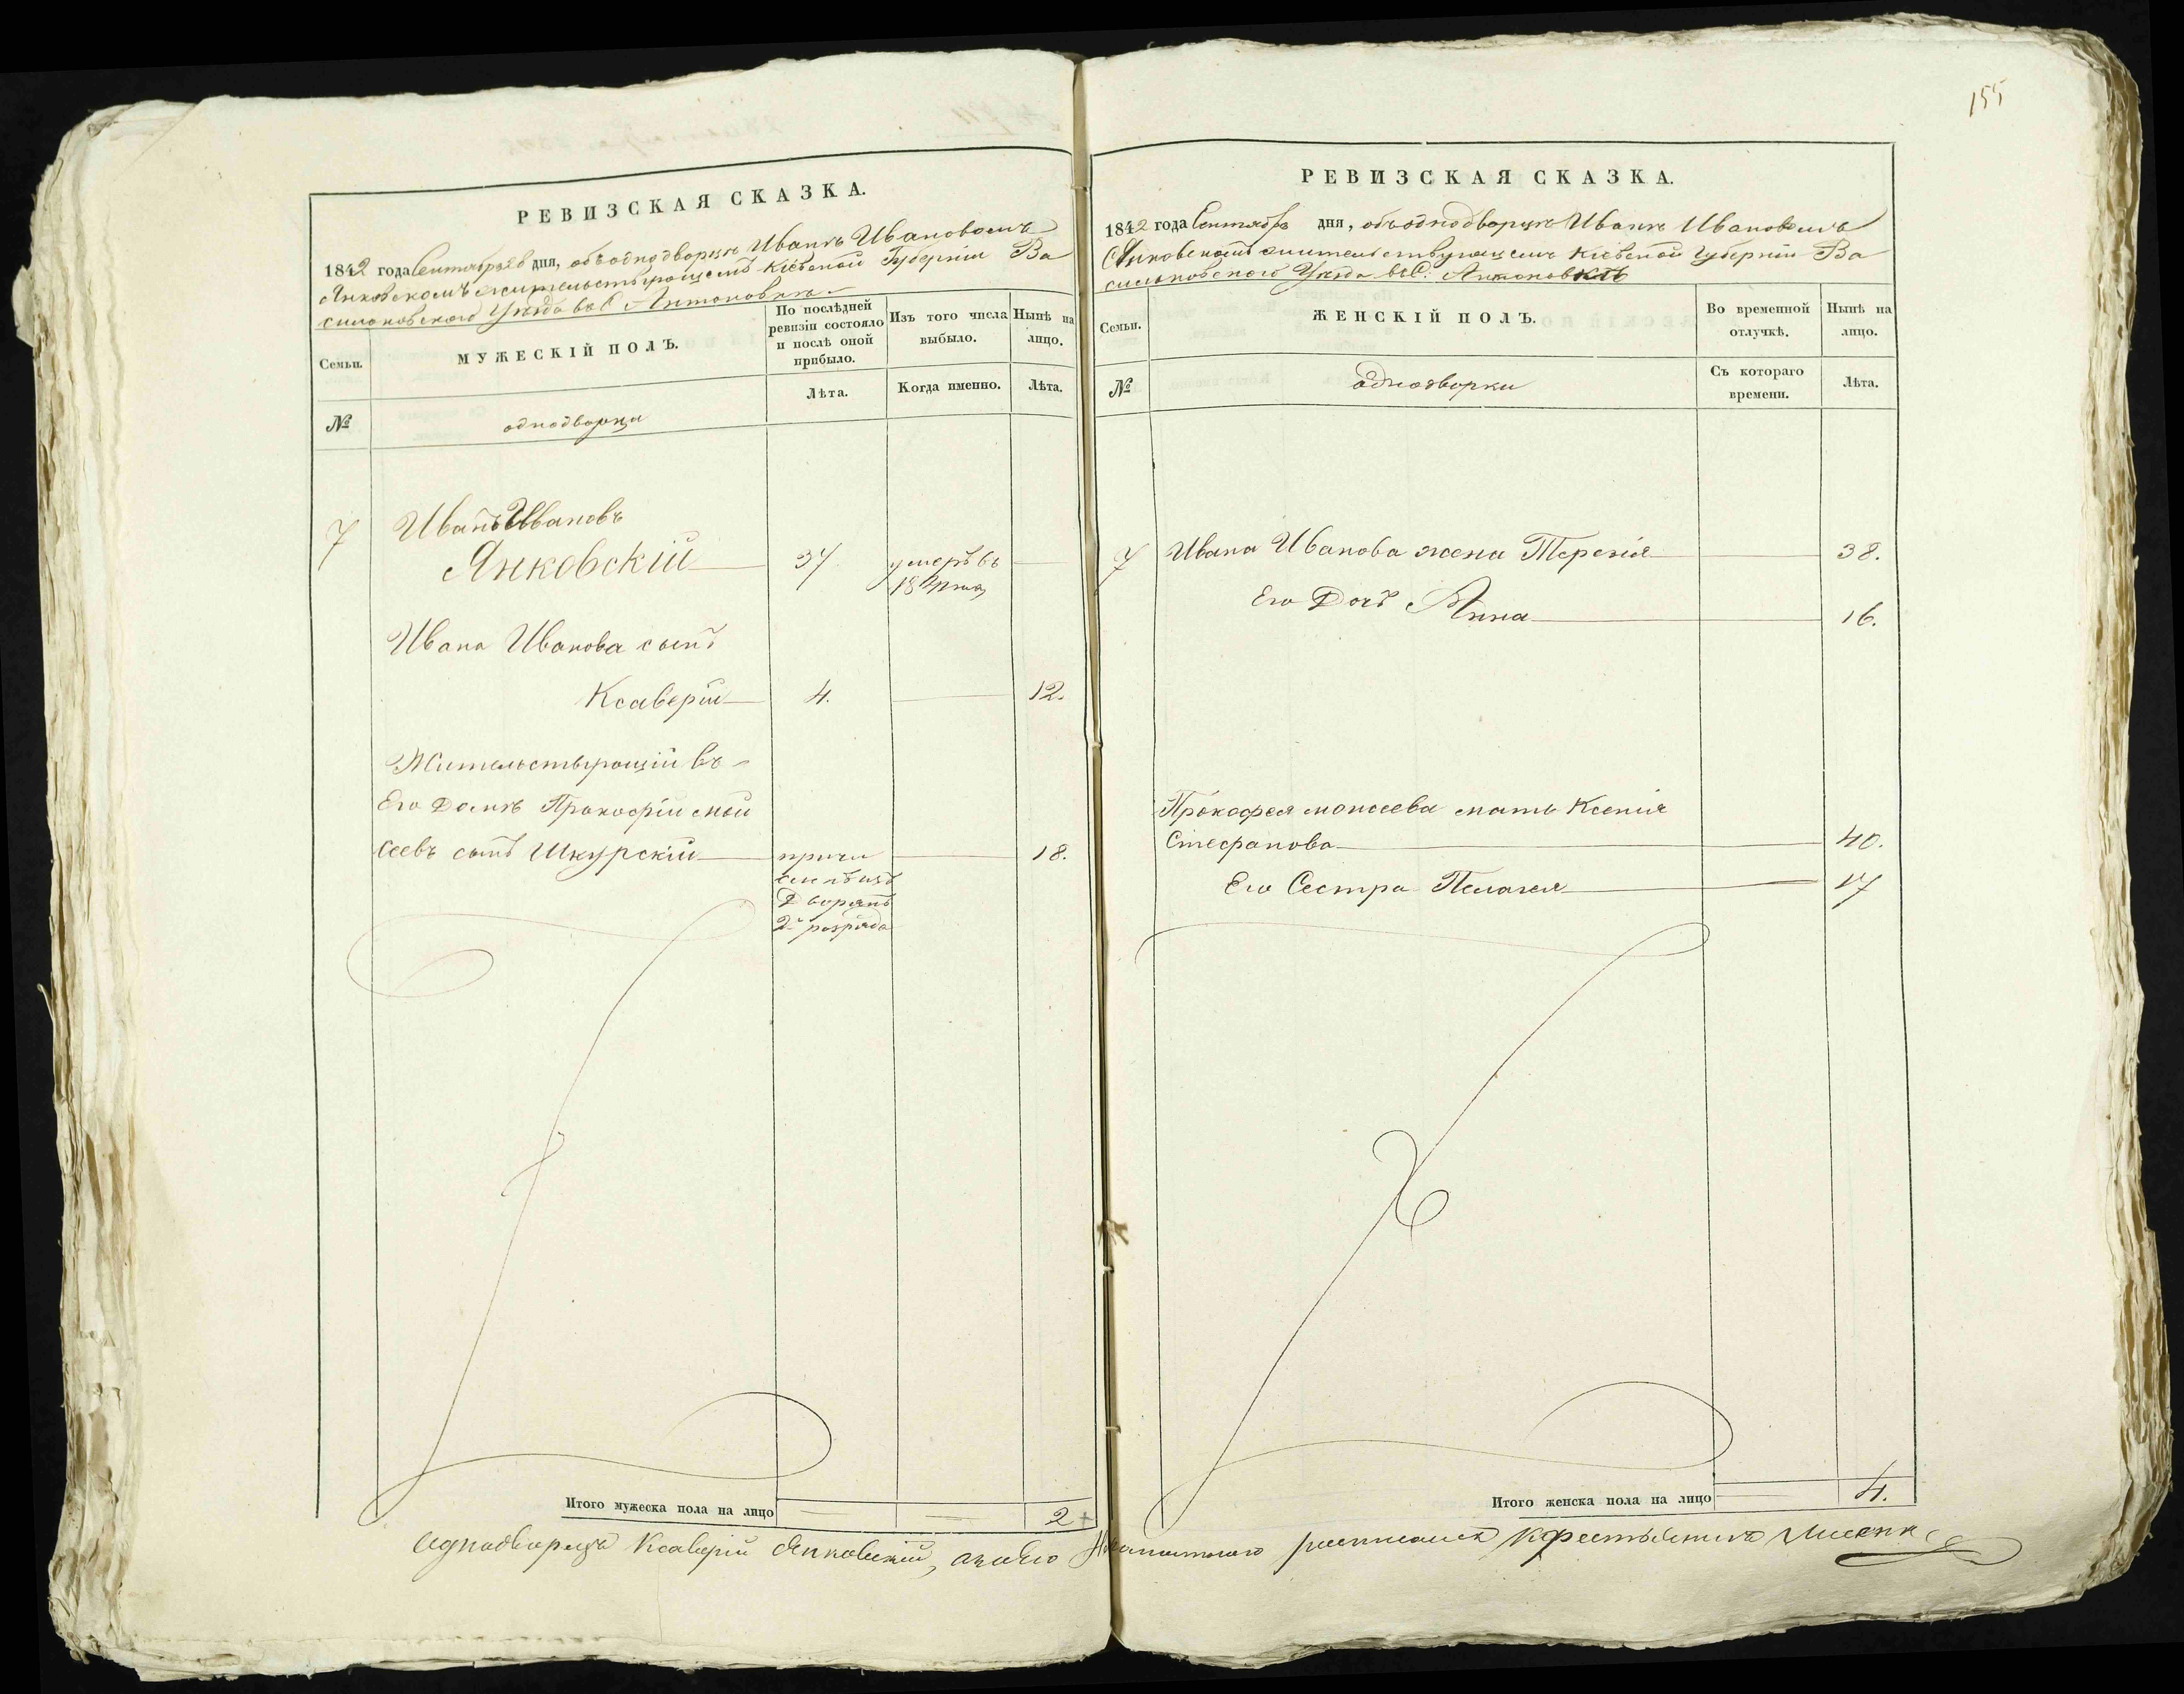 155
РЕВИЗСКАЯ СКАЗКА.
1842 года Сентября дня, объ однодворцѣ Иванѣ Ивановомъ
Янковскомъ жительствующемъ Кіевской Губерніи Ва
сильковскаго Уѣзда въ С. Антоновкѣ
Семьи.
МУЖЕСКІЙ ПОЛЪ.
По послѣдней
ревизіи состояло
и послѣ оной
прибыло.
Изъ того числа
выбыло.
Нынѣ на
лицо.
№
однодворцы
Лѣта.
Когда именно.
Лѣта.
7 Иванъ Ивановъ
Янковскій 34 умеръ въ
Ивана Иванова сынъ
Ксаверій 4. 12.
Жительствующій въ
Его Домѣ Прокофій Мои
сеевъ сынъ Шкурскій 18.
причи
сленъ изъ
Дворянъ
2 розряда
Итого мужеска пола на лицо 2
РЕВИЗСКАЯ СКАЗКА.
1842 года Сентября дня, объ однодворцѣ Иванѣ Ивановомъ
Янковскомъ жительствующемъ Кіевской Губерніи Ва
сильковскаго Уѣзда въ С. Антоновкѣ
Семьи.
ЖЕНСКІЙ ПОЛЪ.
Во временной
отлучкѣ.
Нынѣ на
лицо.
№
однодворки
Съ котораго
времени.
Лѣта.
7 Ивана Иванова жена Терезія 38.
Его Дочь Анна 16.
Прокофея Моисеева мать Ксенія
Стефанова 40.
Его Сестра Пелагея 17
Итого женска пола на лицо 4.
Однодворецъ Ксаверій Янковскій, а за его неграмотнаго росписался